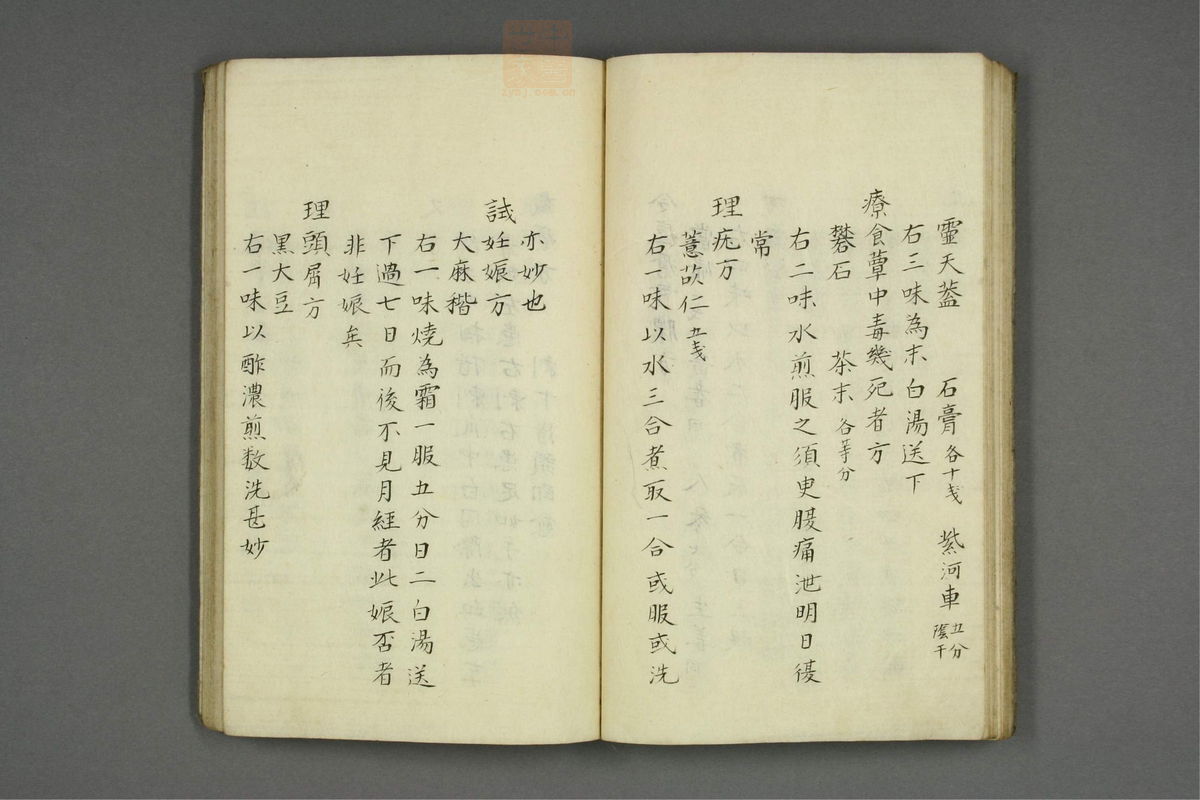 靈天蓋　石膏各十戔　紫河車五分陰干
右三味為末白湯送下
療食蕈中毒幾死者方
礬石　茶末各等分
右二味水煎服之須臾腹痛泄明日復
常
理疣方
薏苡仁五戔
右一味以水三合煮取一合或服或洗
亦妙也
試妊娠方
大麻稭
右一味燒為霜一服五分日二白湯送
下過七日而後不見月經者此娠否者
非妊娠矣
理頭屑方
黑大豆
右一味以酢濃煎数洗甚妙
zysj.com.cn